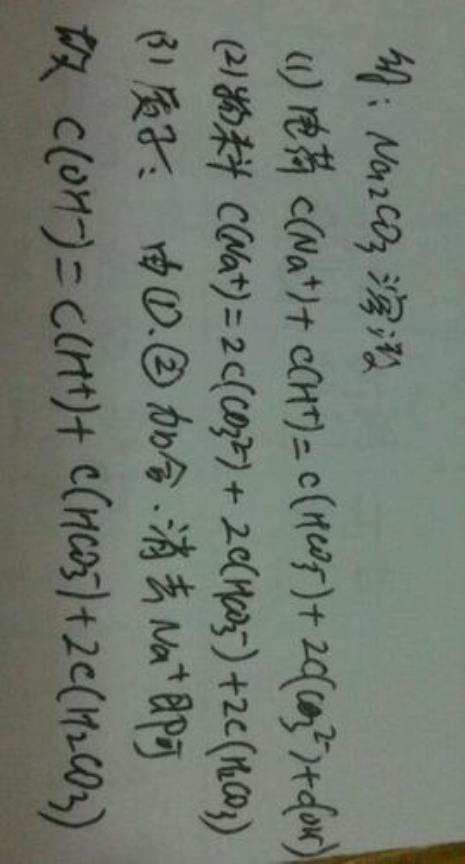 例：Na₂CO₃溶液
(1) 电荷 c(Na⁺)+c(H⁺)=c(HCO₃⁻)+2c(CO₃²⁻)+c(OH⁻)
(2) 物料 c(Na⁺)=2c(CO₃²⁻)+2c(HCO₃⁻)+2c(H₂CO₃)
(3) 质子：由①.②加合.消去Na⁺即可
故 c(OH⁻)=c(H⁺)+c(HCO₃⁻)+2c(H₂CO₃)